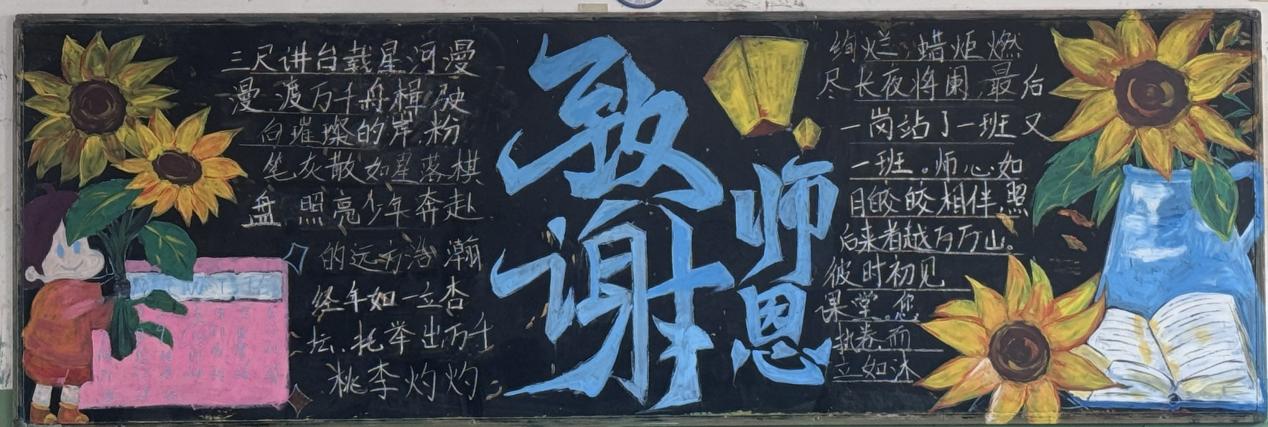 三尺讲台载星河漫
漫渡万千舟楫驶
向璀璨的岸粉
笔灰散如星落棋
盘照亮少年奔赴
的远方浩瀚
经年如一立杏
坛托举出万千
桃李灼灼
致谢
师恩
绚烂蜡炬燃
尽长夜将阑最后
一岗站了一班又
一班。师心如
月皎皎相伴照
后来者越万万山。
彼时初见
课堂您
执卷而
立如沐